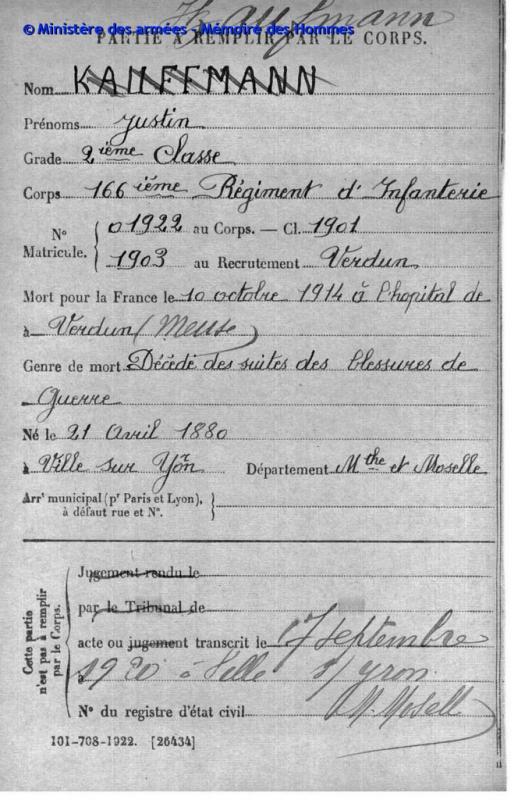 Kauffmann
© Ministère des armées - Mémoire des Hommes
PARTIE A REMPLIR PAR LE CORPS.
Nom KAUFFMANN
Prénoms Justin
Grade 2ième Classe
Corps 166ième Régiment d'Infanterie
N° Matricule. 01922 au Corps. — Cl. 1901
1903 au Recrutement Verdun
Mort pour la France le 10 octobre 1914 à l'hopital de
à Verdun (Meuse)
Genre de mort Décédé des suites des blessures de
Guerre
Né le 21 Avril 1880
à Ville sur Yon Département Mthe et Moselle
Arrt municipal (pr Paris et Lyon),
à défaut rue et N°.
Cette partie n'est pas à remplir par le Corps.
Jugement rendu le
par le Tribunal de
acte ou jugement transcrit le 17 septembre
à 1920 à Ville s/ yron
N° du registre d'état civil M. Mosell
101-708-1922. [26434]